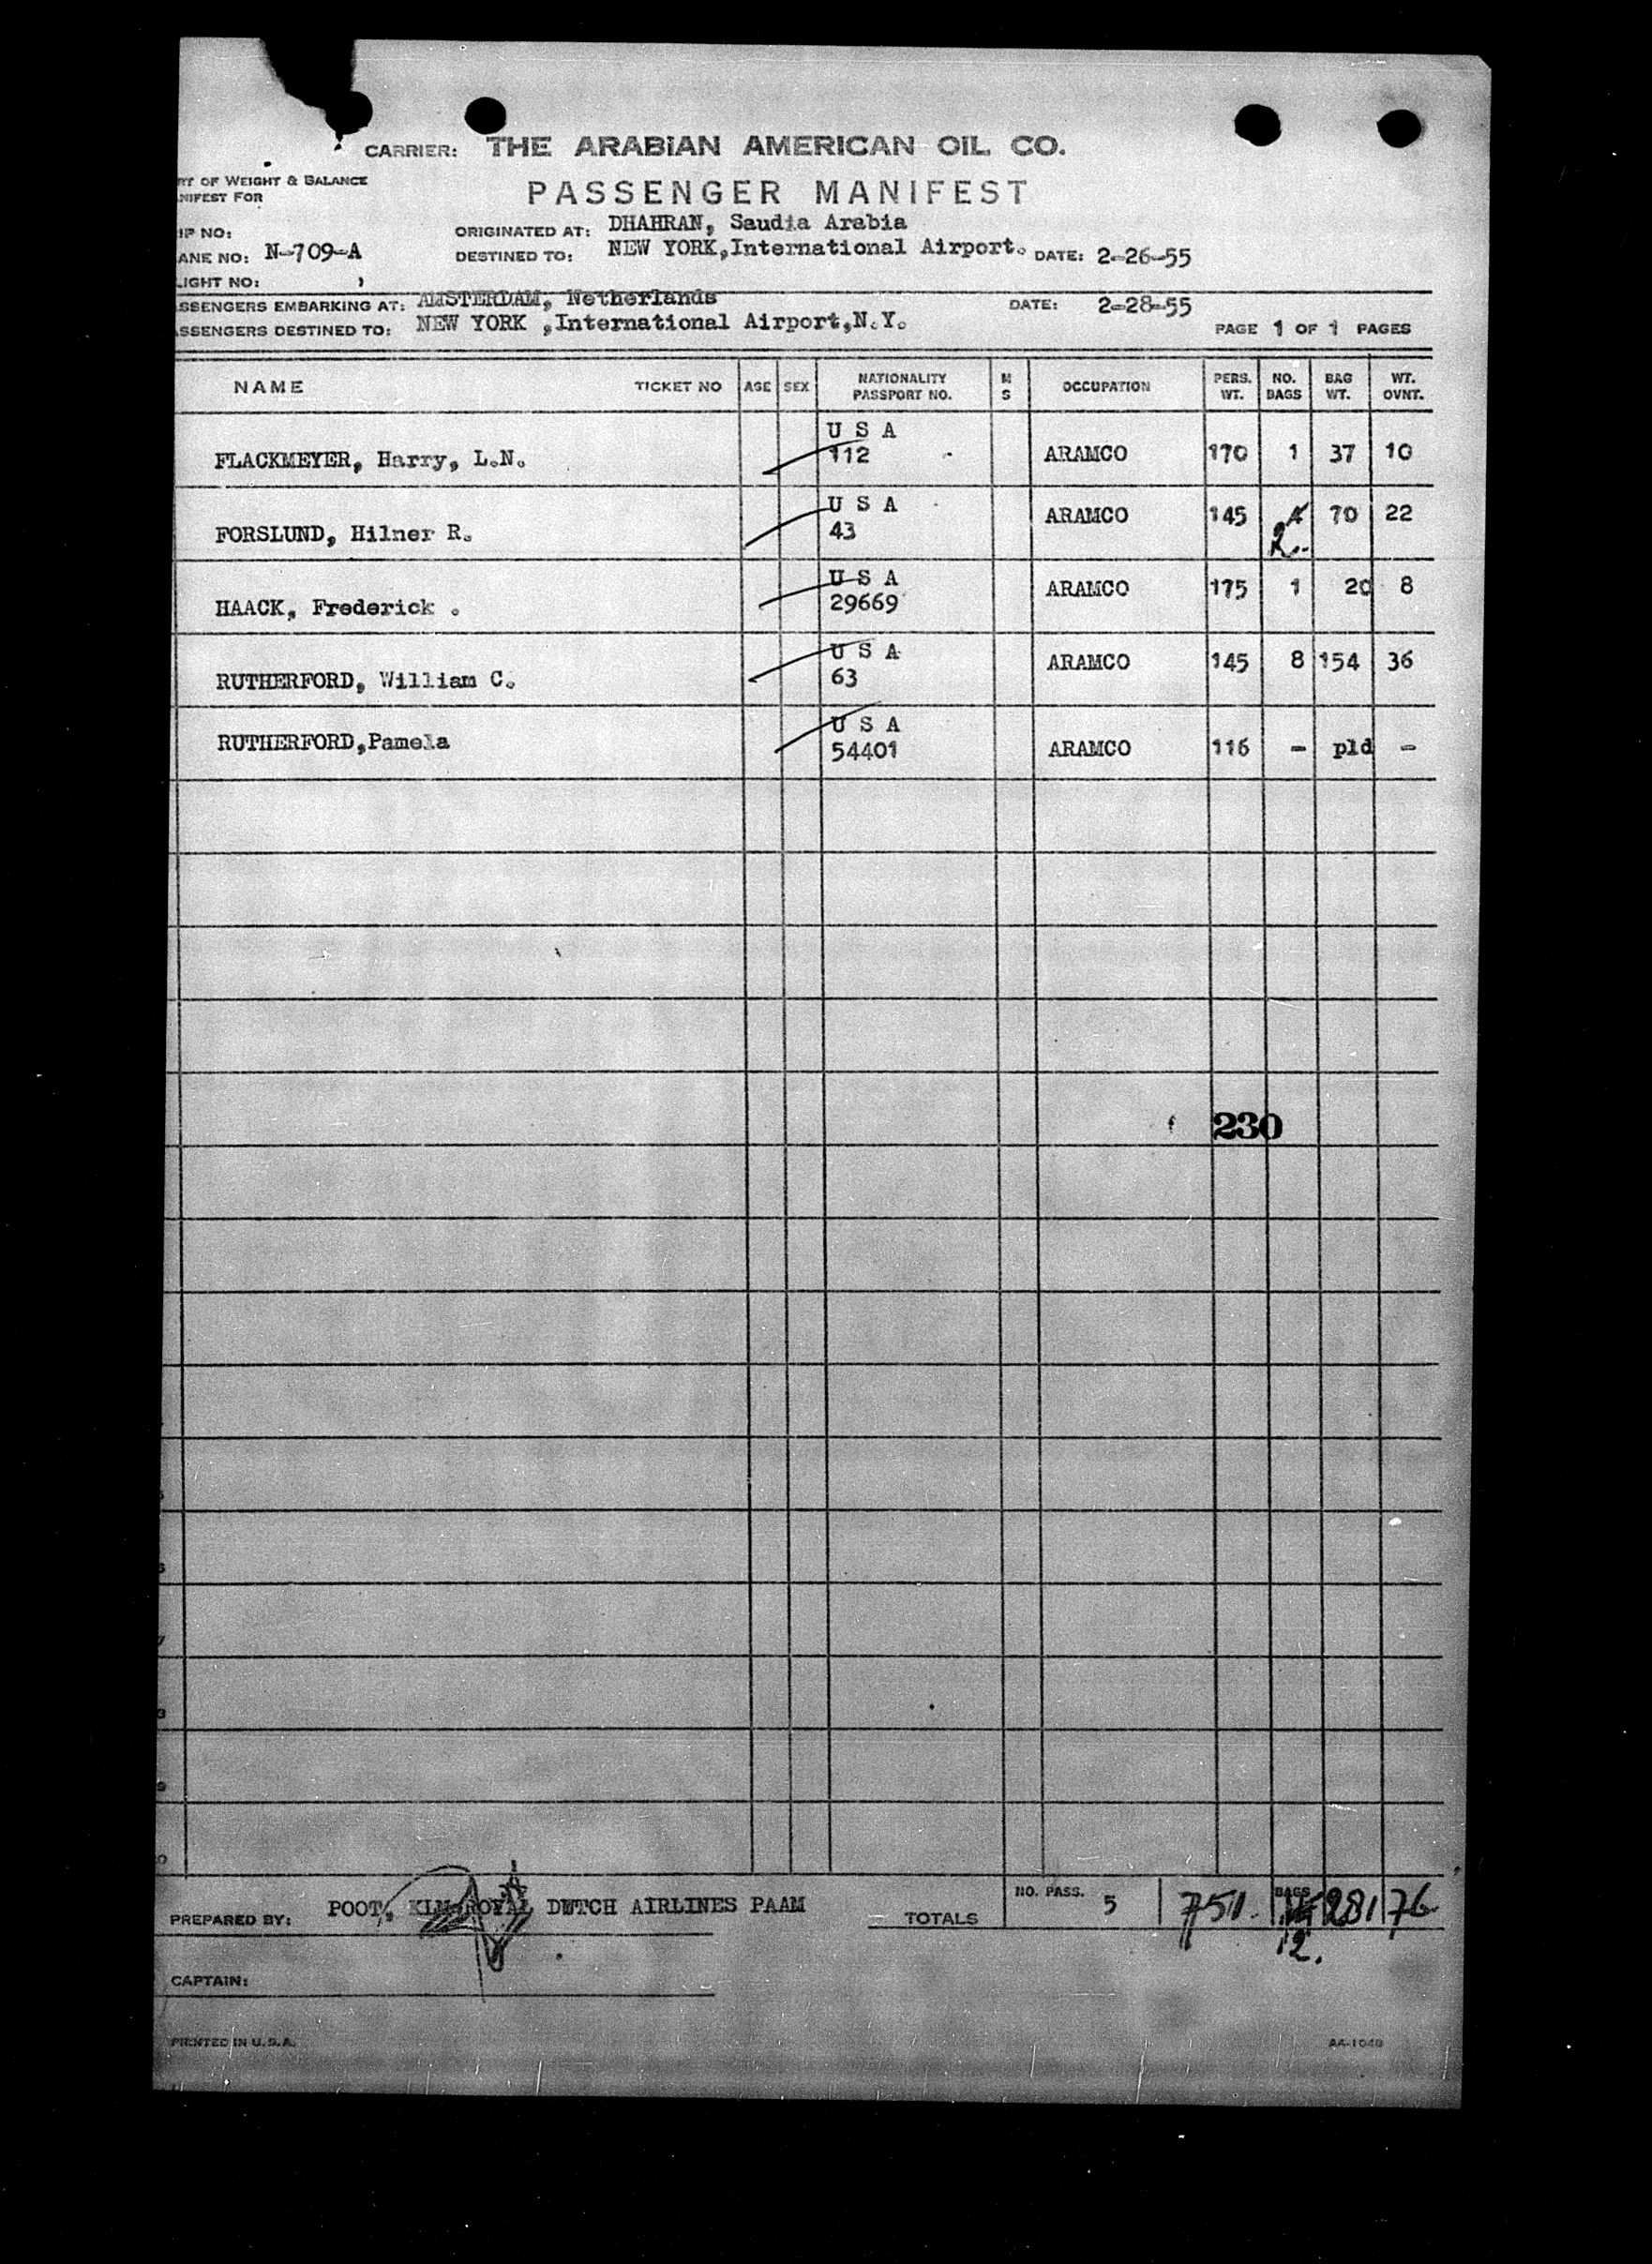 CARRIER: THE ARABIAN AMERICAN OIL CO.
RT OF WEIGHT & BALANCE
NIFEST FOR
PASSENGER MANIFEST
IP NO:
ORIGINATED AT: DHAHRAN, Saudia Arabia
ANE NO: N-709-A
DESTINED TO: NEW YORK,International Airport. DATE: 2-26-55
LIGHT NO:
SSENGERS EMBARKING AT: AMSTERDAM, Netherlands DATE: 2-28-55
SSENGERS DESTINED TO: NEW YORK ,International Airport,N.Y. PAGE 1 OF 1 PAGES
NAME TICKET NO AGE SEX NATIONALITY PASSPORT NO. M S OCCUPATION PERS. WT. NO. BAGS BAG WT. WT. OVNT.
FLACKMEYER, Harry, L.N. U S A 112 ARAMCO 170 1 37 10
FORSLUND, Hilner R. U S A 43 ARAMCO 145 2 70 22
HAACK, Frederick . U S A 29669 ARAMCO 175 1 20 8
RUTHERFORD, William C. U S A 63 ARAMCO 145 8 154 36
RUTHERFORD,Pamela U S A 54401 ARAMCO 116 - pld -
230
PREPARED BY: POOT, KLM ROYAL DUTCH AIRLINES PAAM
TOTALS NO. PASS. 5 751 BAGS 12. 281 76
CAPTAIN:
PRINTED IN U.S.A. AA-1048